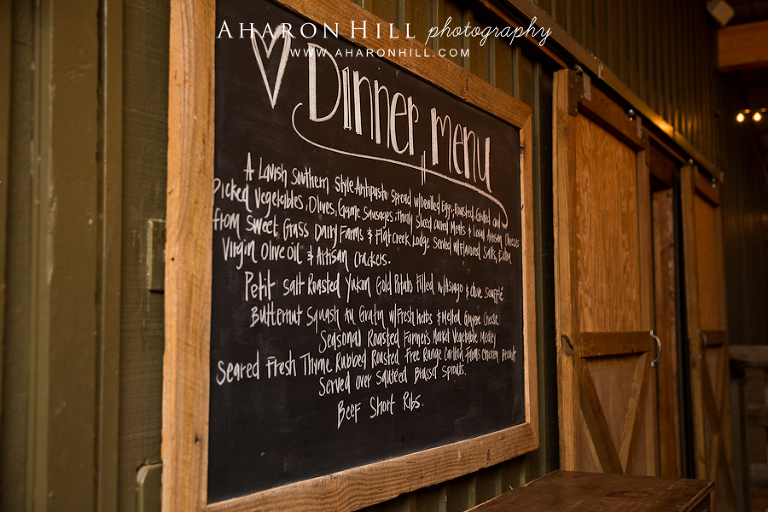 AHARON HILL photography
WWW.AHARONHILL.COM
Dinner Menu
A Lavish Southern Style Antipasto Spread w/Deviled Eggs, Roasted, Grilled and
Picked Vegetables, Olives, Game Sausages, Thinly Sliced Cured Meats & Local Artisan Cheeses
from Sweet Grass Dairy Farms & Flat Creek Lodge Served w/Flavored Salts, Extra
Virgin Olive Oil & Artisan Crackers.
Petit Salt Roasted Yukon Gold Potato Filled w/Asiago & Chive Soufflé
Butternut Squash Au Gratin w/Fresh Herbs & Melted Gruyere Cheese
Seasonal Roasted Farmer's Market Vegetable Medley
Seared Fresh Thyme Rubbed Roasted Free Range Chicken Breast
Served over Sautéed Brussel Sprouts.
Beef Short Ribs.